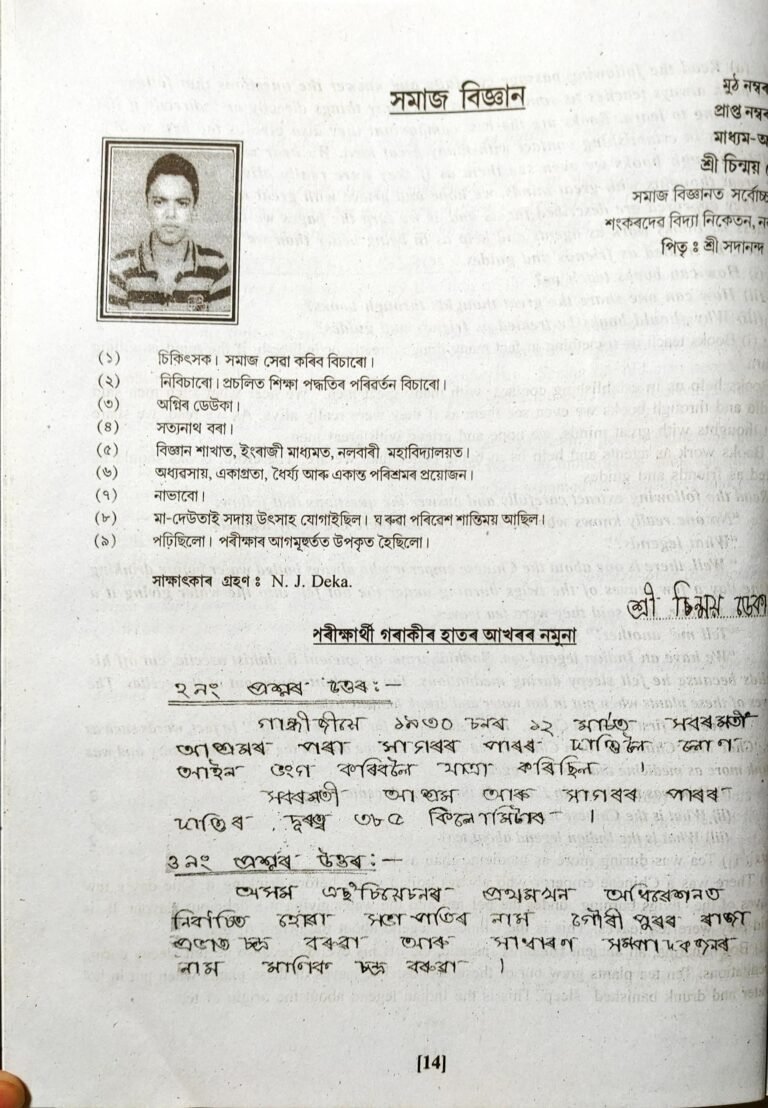 সমাজ বিজ্ঞান
মুঠ নম্বৰ
প্ৰাপ্ত নম্বৰ
মাধ্যম-অ
শ্ৰী চিন্ময়
সমাজ বিজ্ঞানত সৰ্বোচ্চ
শংকৰদেব বিদ্যা নিকেতন, নল
পিতৃ ঃ শ্ৰী সদানন্দ
(১) চিকিৎসক। সমাজ সেৱা কৰিব বিচাৰো।
(২) নিবিচাৰো। প্ৰচলিত শিক্ষা পদ্ধতিৰ পৰিৱৰ্তন বিচাৰো।
(৩) অগ্নিৰ ডেউকা।
(৪) সত্যনাথ বৰা।
(৫) বিজ্ঞান শাখাত, ইংৰাজী মাধ্যমত, নলবাৰী মহাবিদ্যালয়ত।
(৬) অধ্যৱসায়, একাগ্ৰতা, ধৈৰ্য্য আৰু একান্ত পৰিশ্ৰমৰ প্ৰয়োজন।
(৭) নাভাবো।
(৮) মা-দেউতাই সদায় উৎসাহ যোগাইছিল। ঘৰুৱা পৰিৱেশ শান্তিময় আছিল।
(৯) পঢ়িছিলো। পৰীক্ষাৰ আগমূহুৰ্তত উপকৃত হৈছিলো।
সাক্ষাৎকাৰ গ্ৰহণ ঃ N. J. Deka.
শ্ৰী চিন্ময় ডেকা
পৰীক্ষাৰ্থী গৰাকীৰ হাতৰ আখৰৰ নমুনা
২ নং প্ৰশ্নৰ উত্তৰ :-
গান্ধীজীয়ে ১৯৩০ চনৰ ১২ মাৰ্চত সবৰমতী
আশ্ৰমৰ পৰা সাগৰৰ পাৰৰ দাণ্ডিলৈ লোণ
আইন ভংগ কৰিবলৈ যাত্ৰা কৰিছিল ।
সবৰমতী আশ্ৰম আৰু সাগৰৰ পাৰৰ
দাণ্ডিৰ দূৰত্ব ৩৮৫ কিলোমিটাৰ ।
৩ নং প্ৰশ্নৰ উত্তৰ :-
অসম এছ'চিয়েচনৰ প্ৰথমখন অধিৱেশনত
নিৰ্বাচিত হোৱা সভাপতিৰ নাম গৌৰীপুৰৰ ৰাজা
প্ৰভাত চন্দ্ৰ বৰুৱা আৰু সাধাৰণ সম্পাদকজনৰ
নাম মাণিক চন্দ্ৰ বৰুৱা ।
[14]